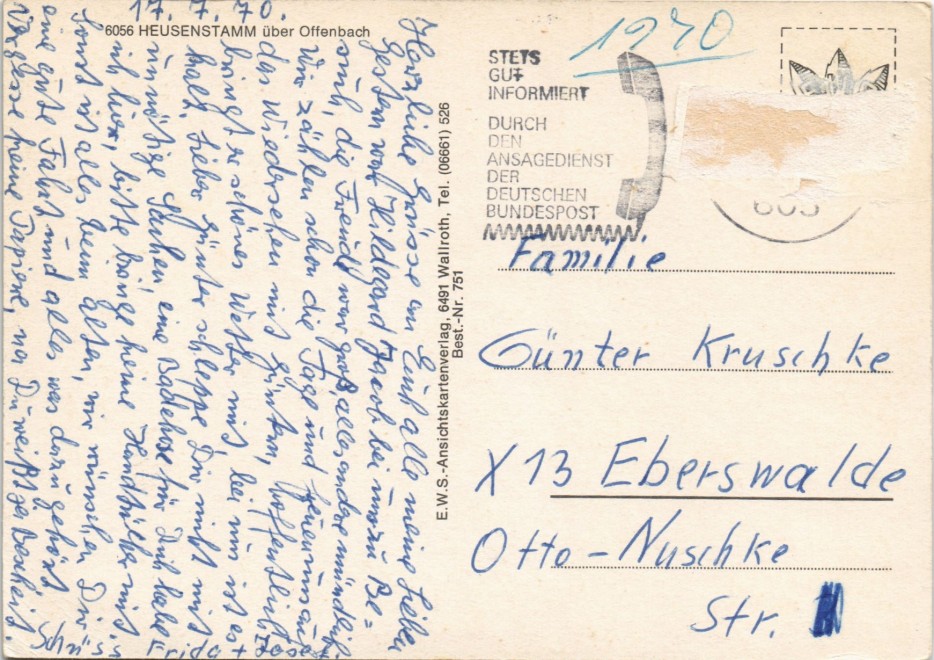 17. 7. 70.
6056 HEUSENSTAMM über Offenbach
Herzliche Grüsse an Euch alle meine Lieben
Gestern war Hildegard Jacob bei uns zu Be=
such, die Freude war groß, alles andere mündlich
Wir zählen schon die Tage und freuen uns auf
das Wiedersehen mit Günter, hoffentlich
bringt er schönes Wetter mit, bei uns ist es
kalt, lieber Günter schleppe Dir nicht mit
unnötige Sachen, eine Badehose für Dich habe
ich hier, bitte bringe keine Handtücher mit.
Sonst ist alles beim alten, wir wünschen Dir
eine gute Fahrt und alles was dazu gehört
Vergesse keine Papiere, na Du weißt ja Bescheid
Schüss
Frida +
E.W.S.-Ansichtskartenverlag, 6491 Wallroth, Tel. (06661) 526
Best.-Nr. 751
1970
STETS
GUT
INFORMIERT
DURCH
DEN
ANSAGEDIENST
DER
DEUTSCHEN
BUNDESPOST
605
Familie
Günter Kruschke
X13 Eberswalde
Otto-Nuschke
Str.